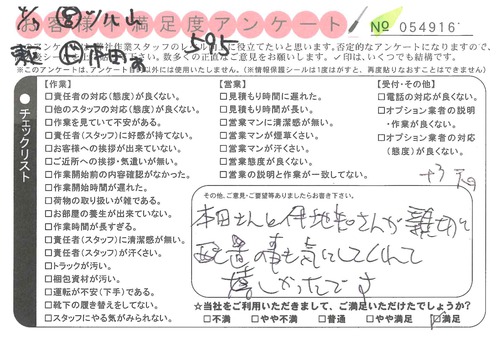 お客様満足度アンケート
№ 054916
595
このアンケートは、弊社作業スタッフのレベル向上に役立てたいと思います。否定的なアンケートになりますので、
数多くの正直なご意見をお願いします。✓印は、いくつでも結構です。
※このアンケートは、アンケート目的以外には使用いたしません。(※情報保護シールは1度はがすと、再度貼りなおすことはできません)
●チェックリスト
【作業】
□責任者の対応(態度)が良くない。
□他のスタッフの対応(態度)が良くない。
□作業を見ていて不安がある。
□責任者(スタッフ)に好感が持てない。
□お客様への挨拶が出来ていない。
□ご近所への挨拶・気遣いが無い。
□作業開始前の内容確認がなかった。
□作業開始時間が遅れた。
□荷物の取り扱いが雑である。
□お部屋の養生が出来ていない。
□作業時間が長すぎる。
□責任者(スタッフ)に清潔感が無い。
□責任者(スタッフ)が汗くさい。
□トラックが汚い。
□梱包資材が汚い。
□運転が不安(下手)である。
□靴下の履き替えをしてない。
□スタッフにやる気がみられない。
【営業】
□見積もり時間に遅れた。
□見積もり時間が長い。
□営業マンに清潔感が無い。
□営業マンが煙草くさい。
□営業マンが汗くさい。
□営業態度が良くない。
□営業の説明と作業が一致してない。
【受付・その他】
□電話の対応が良くない。
□オプション業者の説明
・作業が良くない。
□オプション業者の対応
(態度)が良くない。
その他、ご意見・ご要望等ありましたらお書き下さい。
本田さんと
さんが親切で
の事も気にしてくれて
嬉しかったです
☆当社をご利用いただきまして、ご満足いただけたでしょうか?
□不満 □やや不満 □普通 □やや満足 ☑満足